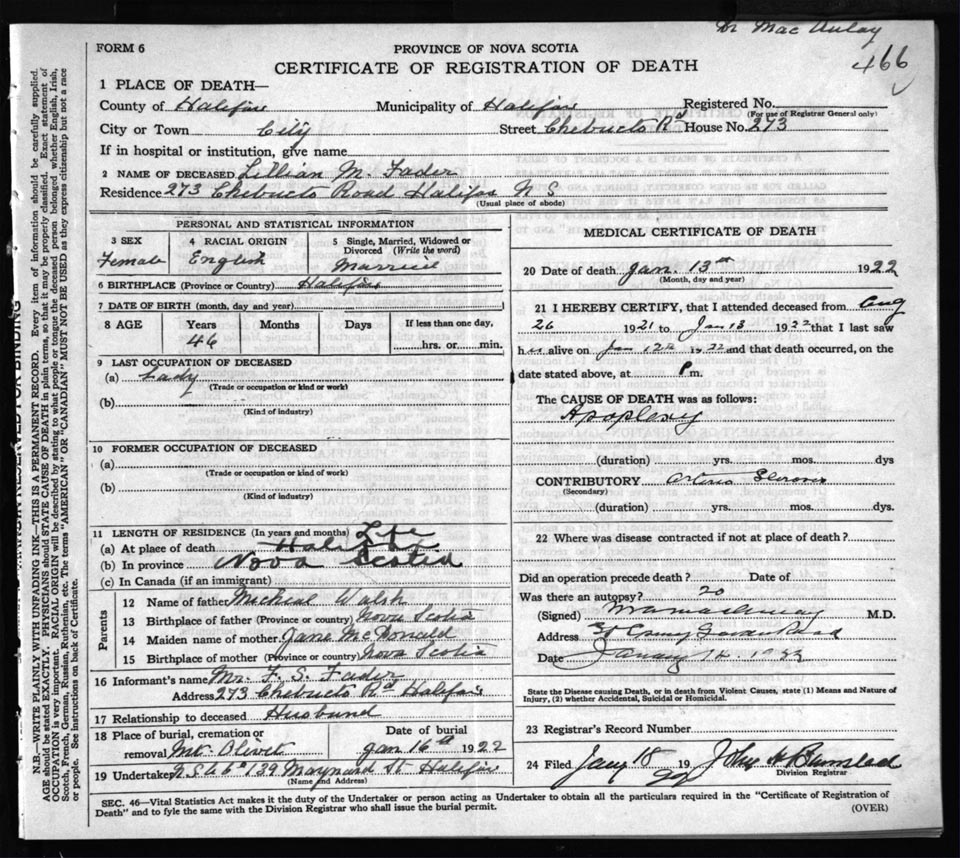 Dr Mac Aulay
466
FORM 6
PROVINCE OF NOVA SCOTIA
CERTIFICATE OF REGISTRATION OF DEATH
1 PLACE OF DEATH—
County of Halifax Municipality of Halifax Registered No.
(For use of Registrar General only)
City or Town City Street Chebucto Rd House No. 273
If in hospital or institution, give name
2 NAME OF DECEASED Lillian M. Fader
Residence 273 Chebucto Road Halifax N S
(Usual place of abode)
PERSONAL AND STATISTICAL INFORMATION
3 SEX 4 RACIAL ORIGIN 5 Single, Married, Widowed or
Divorced (Write the word)
Female English Married
6 BIRTHPLACE (Province or Country) Halifax
7 DATE OF BIRTH (month, day and year)
8 AGE Years Months Days If less than one day,
46 hrs. or min.
9 LAST OCCUPATION OF DECEASED
(a) Lady
(Trade or occupation or kind or work)
(b)
(Kind of industry)
10 FORMER OCCUPATION OF DECEASED
(a)
(Trade or occupation or kind of work)
(b)
(Kind of industry)
11 LENGTH OF RESIDENCE (In years and months) Life
(a) At place of death Halifax
(b) In province Nova Scotia
(c) In Canada (if an immigrant)
Parents
12 Name of father Micheal Walsh
13 Birthplace of father (Province or country) Nova Scotia
14 Maiden name of mother Jane McDonald
15 Birthplace of mother (Province or country) Nova Scotia
16 Informant's name Mr. F. S. Fader
Address 273 Chebucto Rd Halifax
17 Relationship to deceased Husbund
18 Place of burial, cremation or Date of burial
removal Mt Olivet Jan 16th 1922
19 Undertaker 139 Maynard St Halifax
(Name and Address)
MEDICAL CERTIFICATE OF DEATH
20 Date of death Jan. 13th 1922
(Month, day and year)
21 I HEREBY CERTIFY, that I attended deceased from Aug
26 1921 to Jan 13 1922 that I last saw
her alive on Jan 12th 1922 and that death occurred, on the
date stated above, at P m.
The CAUSE OF DEATH was as follows:
Apoplexy
(duration) yrs. mos. dys
CONTRIBUTORY Arterio Sclerosis
(Secondary)
(duration) yrs. mos. dys.
22 Where was disease contracted if not at place of death?
Did an operation precede death? Date of
Was there an autopsy? no
(Signed) M.D.
Address
Date January 14. 1922
State the Disease causing Death, or in death from Violent Causes, state (1) Means and Nature of
Injury, (2) whether Accidental, Suicidal or Homicidal.
23 Registrar's Record Number
24 Filed Jany 18 19 22 John
Division Registrar
SEC. 46—Vital Statistics Act makes it the duty of the Undertaker or person acting as Undertaker to obtain all the particulars required in the "Certificate of Registration of
Death" and to fyle the same with the Division Registrar who shall issue the burial permit.
(OVER)
MARGIN RESERVED FOR BINDING
N.B.—WRITE PLAINLY WITH UNFADING INK—THIS IS A PERMANENT RECORD. Every item of information should be carefully supplied.
AGE should be stated EXACTLY. PHYSICIANS should STATE CAUSE OF DEATH in plain terms, so that it may be properly classified. Exact statement of
OCCUPATION is very important. RACIAL ORIGIN will be described by stating to what people or tongue the deceased person belonged whether English, Irish,
Scotch, French, German, Russian, Ruthenian, etc. The terms "AMERICAN" OR "CANADIAN" MUST NOT BE USED as they express citizenship but not a race
or people. See instructions on back of Certificate.